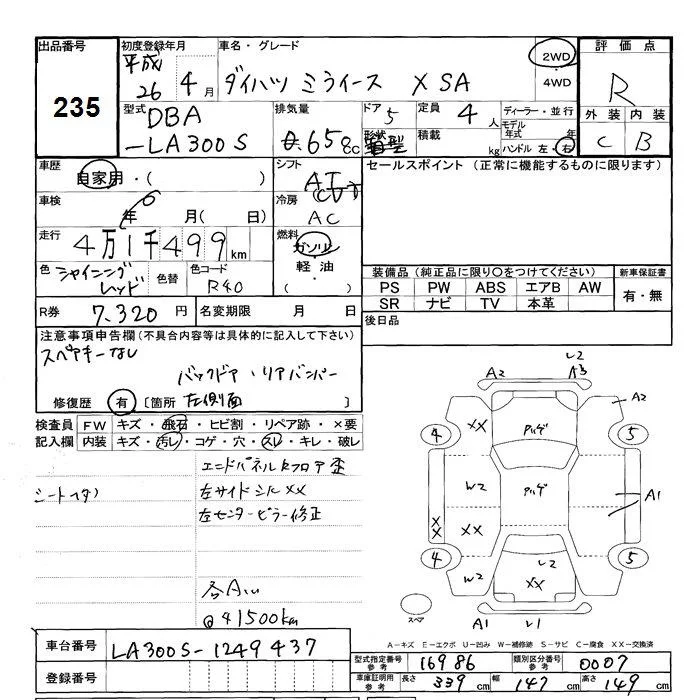 出品番号
235
初度登録年月
平成
26年 4月
車名・グレード
ダイハツ ミライース X SA
2WD
・
4WD
評価点
R
外装 内装
C B
型式
DBA
-LA300S
排気量
0.658cc
ドア 5
形状
定員 4人
積載 kg
ディーラー・並行
モデル年式 年
ハンドル 左・右
車歴
自家用・( )
車検
0
年 月( 日)
走行
4万1千499km
色
シャイニング
レッド
色替
色コード
R40
シフト
AT
CVT
冷房
AC
燃料
ガソリン
軽油
・( )
セールスポイント (正常に機能するものに限ります)
装備品 (純正品に限り〇をつけてください)
新車保証書
PS PW ABS エアB AW
SR ナビ TV 本革
有・無
R券 7,320円
名変期限 月 日
後日品
注意事項申告欄(不具合内容等は具体的に記入して下さい)
スペアキーなし
バックドア・リアバンパー
修復歴 有 [箇所 左側面 ]
検査員
記入欄
FW キズ・飛石・ヒビ割・リペア跡・×要
内装 キズ・汚レ・コゲ・穴・スレ・キレ・破レ
エンドパネルRフロア歪
シートヘタリ
左サイドシルXX
左センターピラー修正
各Aい
@41500km
A2
L2
A3
A2
XX
4
5
アハゲ
W2
アハゲ
A1
XX
XX
4
5
W2
L2
XX
スペア
A1
L1
A-キズ E-エクボ U-凹み W-補修跡 S-サビ C-腐食 XX-交換済
車台番号 LA300S-1249437
登録番号
型式指定番号
参考
16986
類別区分番号
参考
0007
車庫証明用
参考
長さ 339cm 幅 147cm 高さ 149cm